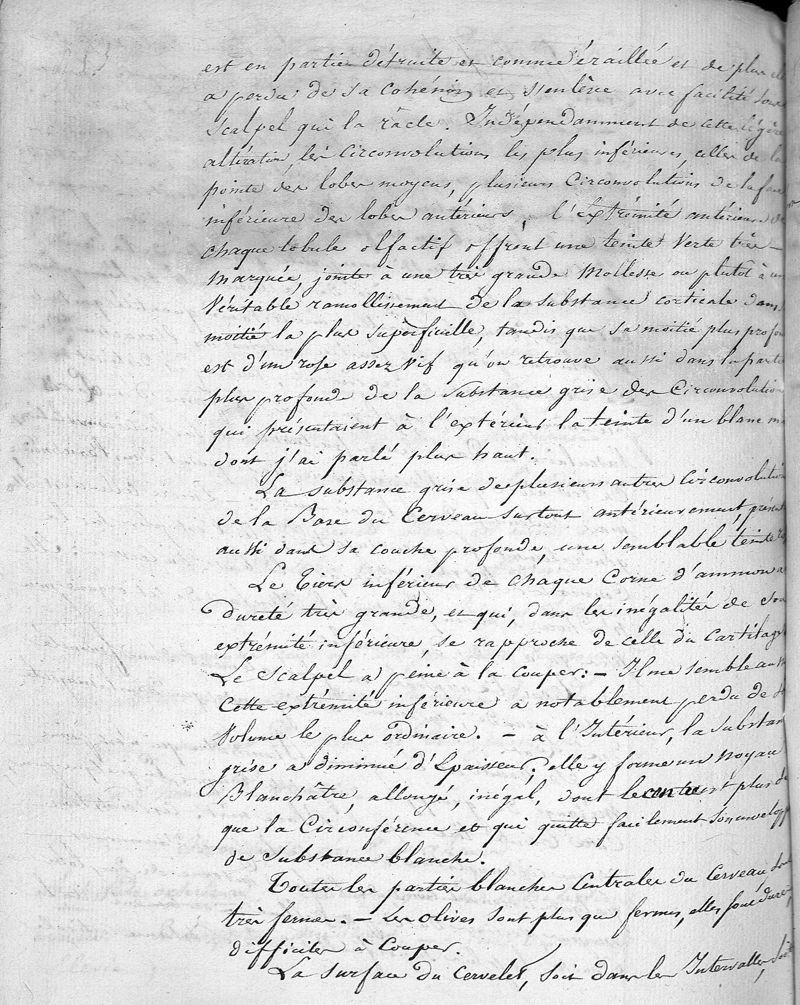 est en partie détruite et comme éraillée et de plus
a perdu de sa cohésion et s'enlève avec facilité sous
Scalpel qui la râcle. Indépendamment de cette légère
altération, les Circonvolutions les plus inférieures, celles de la
pointe des lobes moyens, plusieurs Circonvolutions de la face
inférieure des lobes antérieurs, l'extrémité antérieure de
chaque lobule olfactif offrent une teinte Verte très
marquée, jointe à une très grande Mollesse ou plutot à un
Véritable ramollissement de la substance corticale dans
moitié la plus superficielle, tandis que sa moitié plus profon
est d'un rose assez Vif qu'on retrouve aussi dans la partie
plus profonde de la Substance grise des Circonvolution
qui présentaient à l'extérieur la teinte d'un blanc
dont j'ai parlé plus haut.
La substance grise de plusieurs autres Circonvolution
de la Base du Cerveau surtout antérieurement, présen
aussi dans sa couche profonde, une semblable teinte
Le Tiers inférieur de chaque Corne d'ammon a
Dureté très grande, et qui, dans les inégalités de son
extrémité inférieure, se rapproche de celle du Cartilage
Le Scalpel a peine à la couper: – Il me semble au
Cette extrémité inférieure a notablement perdu de
Volume le plus ordinaire. – à l'Intérieur, la substan
grise a diminué d'Epaisseur; elle y forme un noyau
Blanchâtre, allongé, inégal, dont le centre est plus
que la Circonférence et qui quitte facilement son envelopp
de Substance blanche.
Toutes les parties blanches Centrales du Cerveau
très fermes. – Les Olives sont plus que fermes, elles sont dures,
difficiles à Couper.
La surface du Cervelet, soit dans les Intervalles, soit